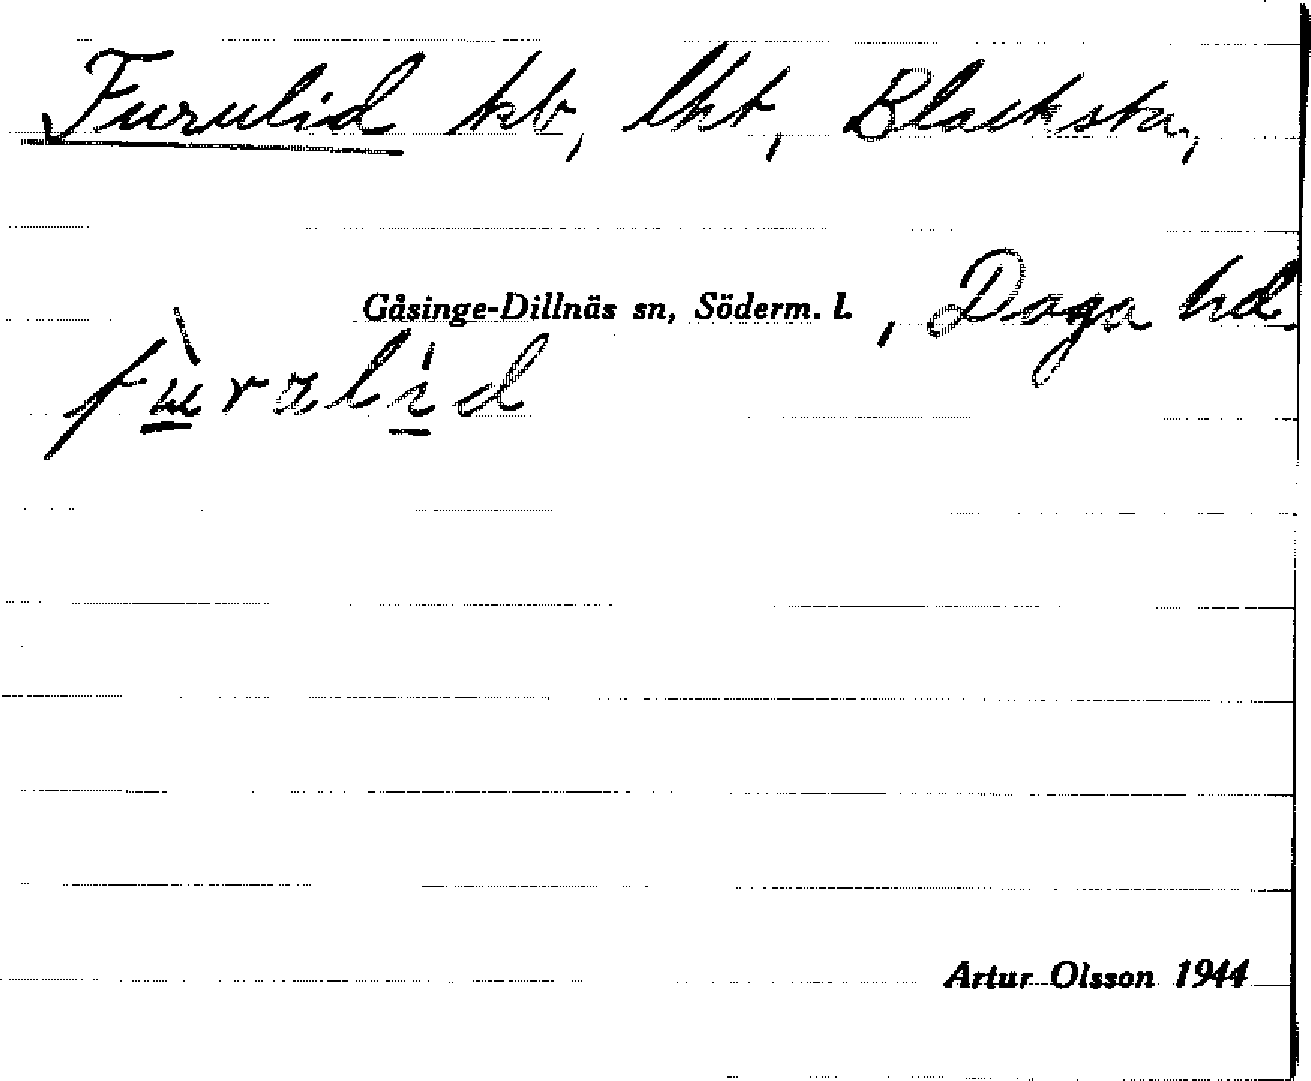 Furulid kb, lht, Blacksta,
Gåsinge-Dillnäs sn, Söderm. l. , Daga hd
fùralid
Artur Olsson 1944